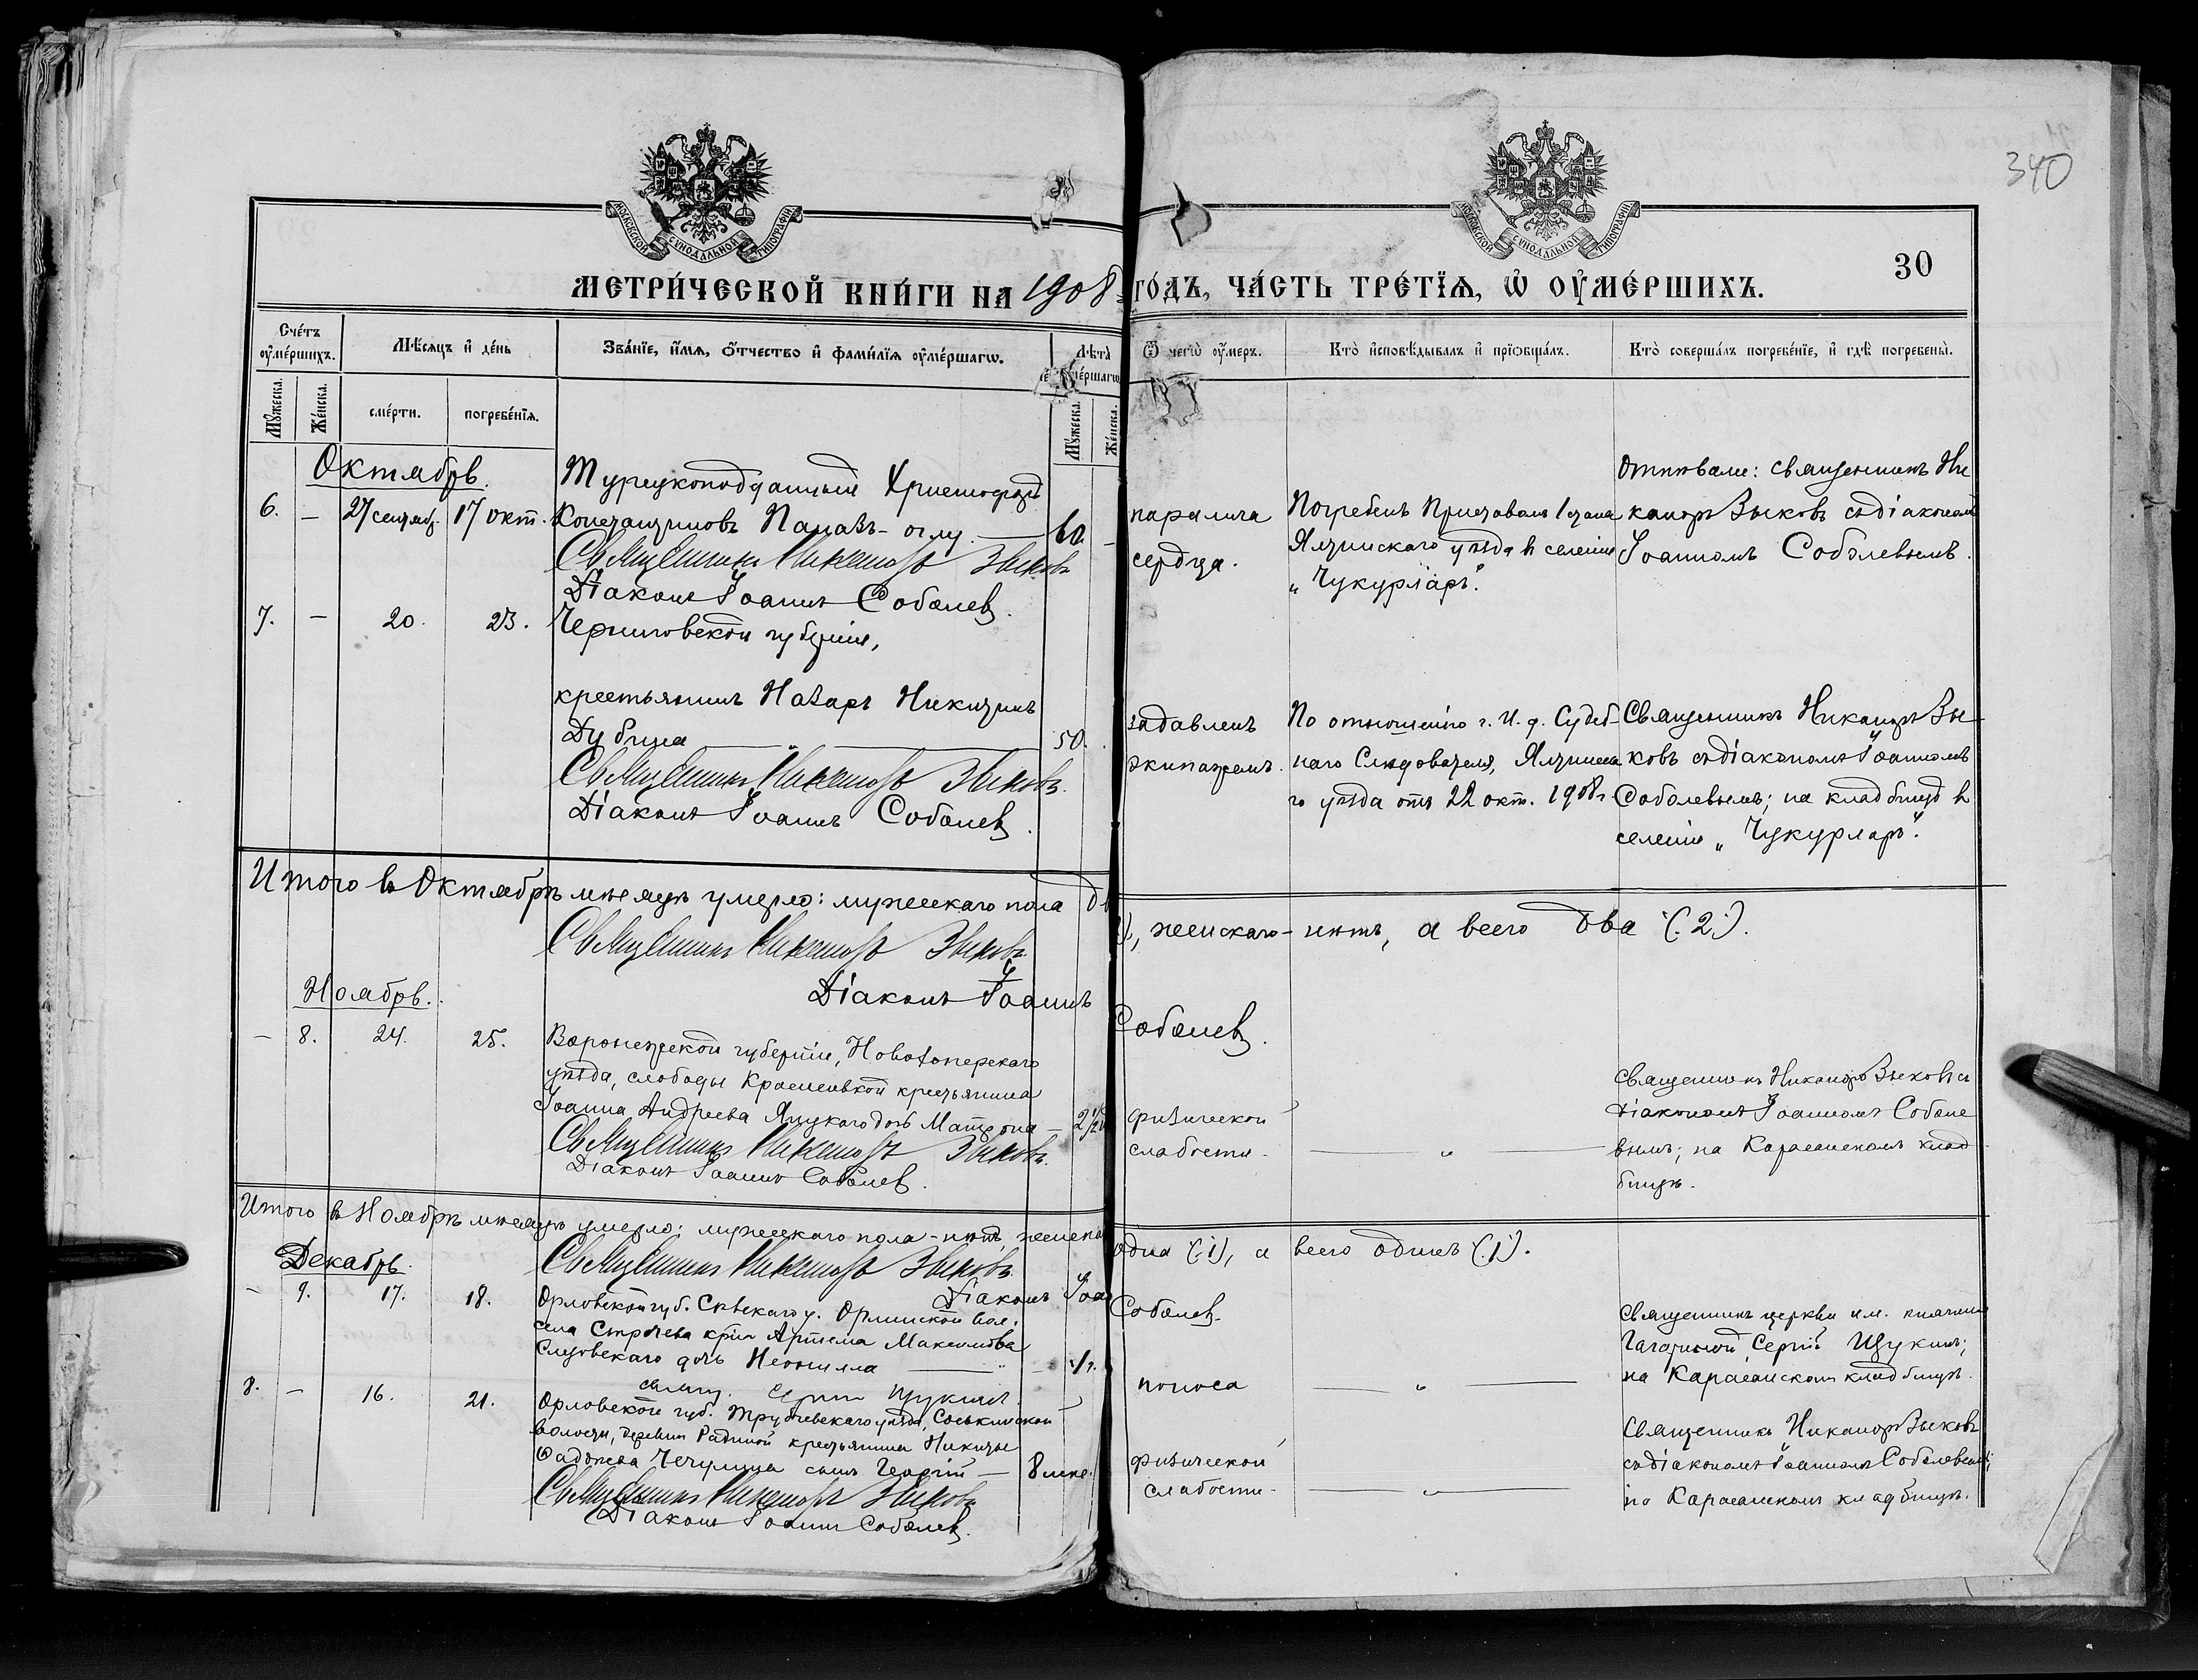 340
МОСКОВСКОЙ СѴНОДАЛЬНОЙ ТИПОГРАФІИ
МОСКОВСКОЙ СѴНОДАЛЬНОЙ ТИПОГРАФІИ
30
МЕТРИ́ЧЕСКОЙ КНИ́ГИ НА 1908 ГО́ДЪ, ЧА́СТЬ ТРЕ́ТЇѦ, Ѡ҆ ОУ҆МЕ́РШИХЪ.
Сче́тъ оу҆ме́ршихъ.
Мѣ́сѧцъ и҆ де́нь
Зва́нїе, и҆́мѧ, ѻ҆́тчество и҆ фами́лїѧ оу҆ме́ршагѡ.
Лѣ́та оу҆ме́ршагѡ
Ѿ чегѡ̀ оу҆́меръ.
Кто̀ и҆сповѣ́дывалъ и҆ прїѡбща́лъ.
Кто̀ соверша́лъ погребе́нїе, и҆ гдѣ̀ погребены̀.
Мꙋ́жеска.
Же́нска.
сме́рти.
погребе́нїѧ.
Мꙋ́жеска.
Же́нска.
Октябрь.
6. — 27 сентяб. 17 окт.
Турецкоподданный Христофоръ
Константиновъ Панавъ-оглу. — 60. —
Священникъ Никаноръ Зыковъ
Діаконъ Іоаннъ Соболев.
паралича
сердца.
Погребенъ Приставомъ 1 стана
Ялтинскаго уѣзда в селеніи
„Чукурларъ".
Отпѣвали: священникъ Ни
каноръ Зыковъ съ діакономъ
Іоанномъ Соболевымъ.
7. — 20. 23.
Черниговской губерніи,
крестьянинъ Назаръ Никитинъ
Дубина — „ — 50.
Священникъ Никаноръ Зыковъ.
Діаконъ Іоаннъ Соболев.
задавленъ
экипажемъ.
По отношенію г. И. д. Судеб-
наго Слѣдователя, Ялтинска
го уѣзда отъ 22 окт. 1908 г.
Священникъ Никаноръ Зы-
ковъ съ діакономъ Іоанномъ
Соболевымъ; на кладбищѣ в
селеніи „Чукурларъ".
Итого въ Октябрѣ мѣсяцѣ умерло: мужескаго пола дв), женскаго - нѣтъ, а всего два (2).
Священникъ Никаноръ Зыковъ
Діаконъ Іоаннъ Соболев.
Ноябрь.
— 8. 24. 25.
Воронежской губерніи, Новохоперскаго
уѣзда, слободы Красненькой крестьянина
Іоанна Андреева Яцукаго дочь Матрона — 2½
Священникъ Никаноръ Зыковъ.
Діаконъ Іоаннъ Соболев.
физической
слабости.
— „ —
Священникъ Никаноръ Зыковъ съ
діакономъ Іоанномъ Соболе
вымъ; на Карасанскомъ клад
бищѣ.
Итого въ Ноябрѣ мѣсяцѣ умерло: мужескаго пола - нѣтъ, женска одна (1), а всего одинъ (1).
Священникъ Никаноръ Зыковъ.
Діаконъ Іоан Соболев.
Декабрь.
— 9. 17. 18.
Орловской губ. Сѣвскаго у. Орлинской вол.
села Строчева крѣн Артема Максимова
дочь Неонилла — „ —
священ. Сергій Щукинъ.
поноса
— „ —
Священникъ церкви им. княгини
Гагариной Сергій Щукинъ;
на Карасанском кладбищѣ.
8. — 16. 21.
Орловской губ. Трубчевскаго уѣзда,
волости, деревни Радиной крестьянина Никиты
Фаддѣева сынъ Георгій — 8 мѣс.
Священникъ Никаноръ Зыковъ
Діаконъ Іоаннъ Соболев.
физической
слабости.
— „ —
Священникъ Никаноръ Зыковъ
съ діакономъ Іоанномъ Соболевымъ;
на Карасанскомъ кладбищѣ.